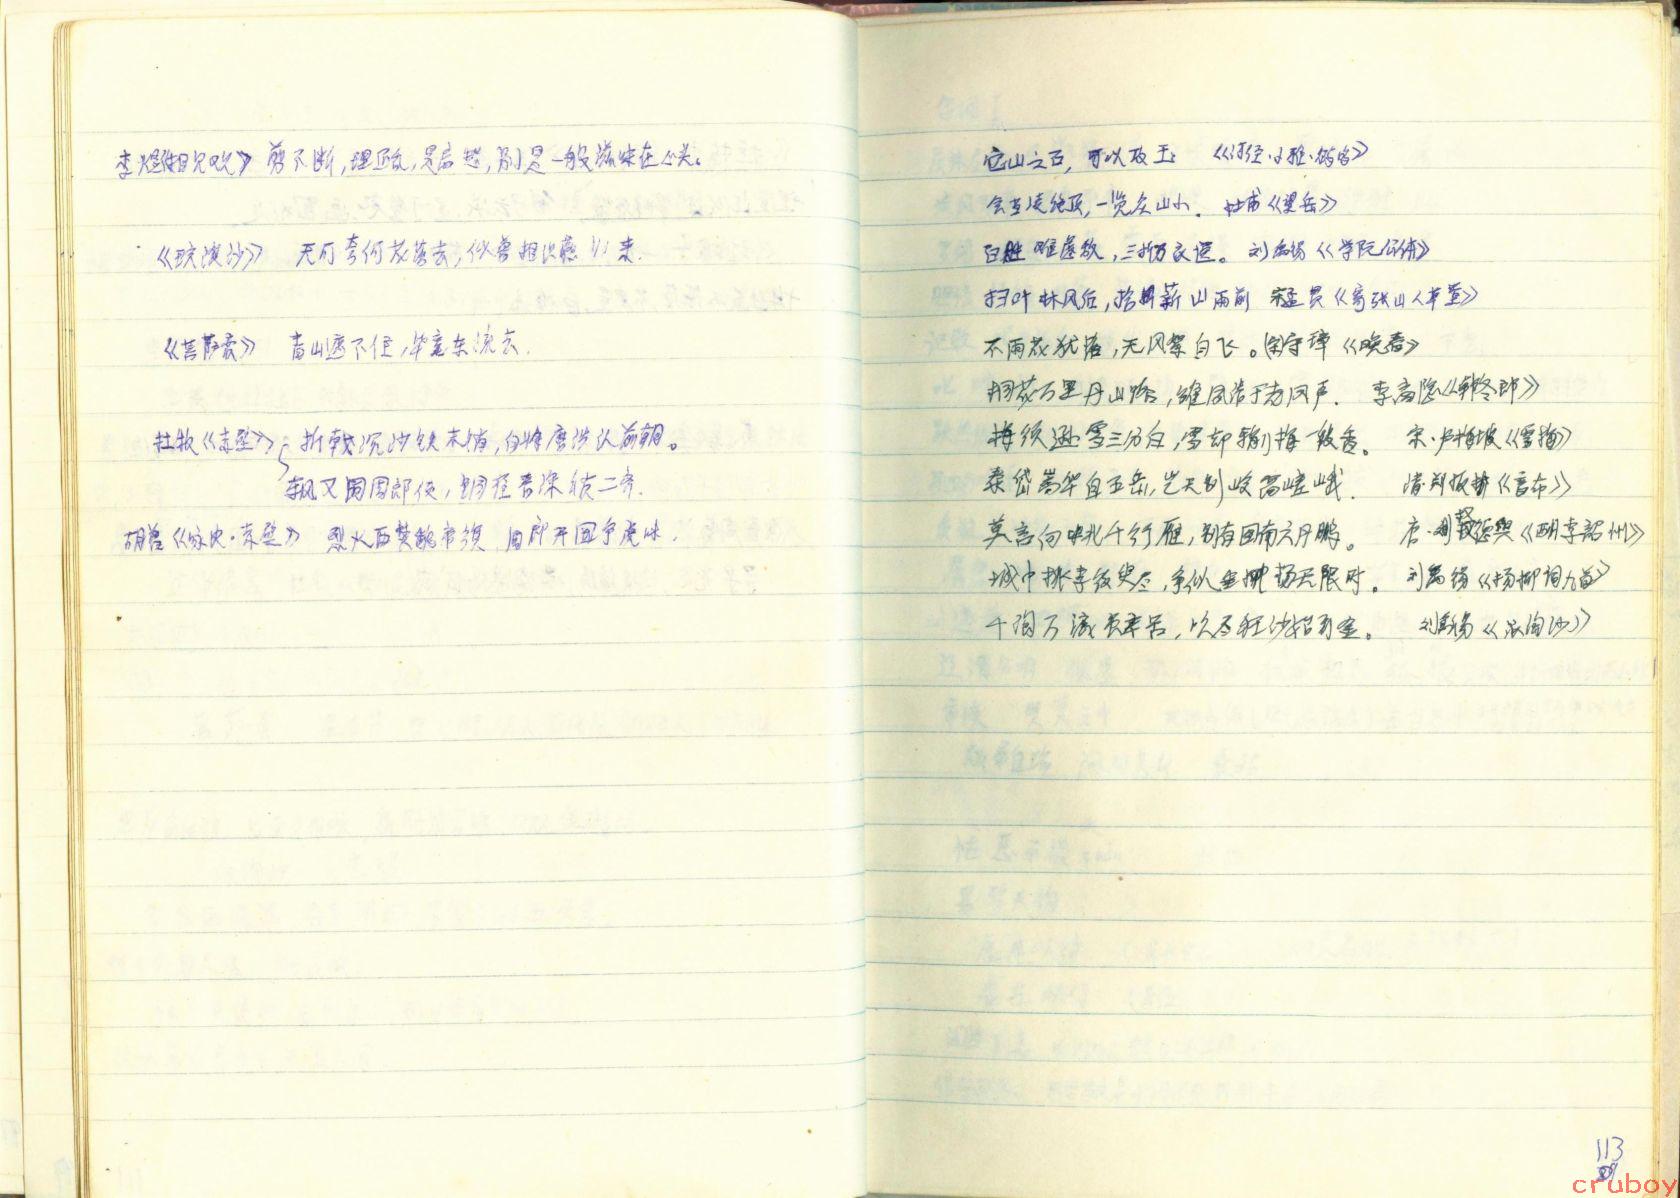 李煜《相见欢》 剪不断,理还乱,是离愁,别是一般滋味在心头。
《浣溪沙》 无可奈何花落去,似曾相识燕归来.
《菩萨蛮》 青山遮不住,毕竟东流去.
杜牧《赤壁》 折戟沉沙铁未销,自将磨洗认前朝。
东风不与周郎便,铜雀春深锁二乔.
胡曾《咏史·赤壁》 烈火西焚魏帝旗,周郎开国争虎味.
它山之石,可以攻玉 《诗经·小雅·鹤鸣》
会当凌绝顶,一览众山小. 杜甫《望岳》
百胜难虑敌,三折乃良医。 刘禹锡《学阮公体》
扫叶林风后,拾薪山雨前 《寄张山人草堂》
不雨花犹落,无风絮自飞。 《晚春》
桐花万里丹山路,雏凤清于老凤声. 李商隐《韩冬郎》
梅须逊雪三分白,雪却输梅一段香。 宋·卢梅坡《雪梅》
泰岱嵩华自五岳,岂无别峻高嵯峨. 清郑板桥
莫言向北千行雁,别有图南六月鹏。 唐·
城中桃李须臾尽,争似垂杨无限时。 刘禹锡《杨柳词九首》
千淘万漉虽辛苦,吹尽狂沙始到金。 刘禹锡《浪淘沙》
113
cruboy